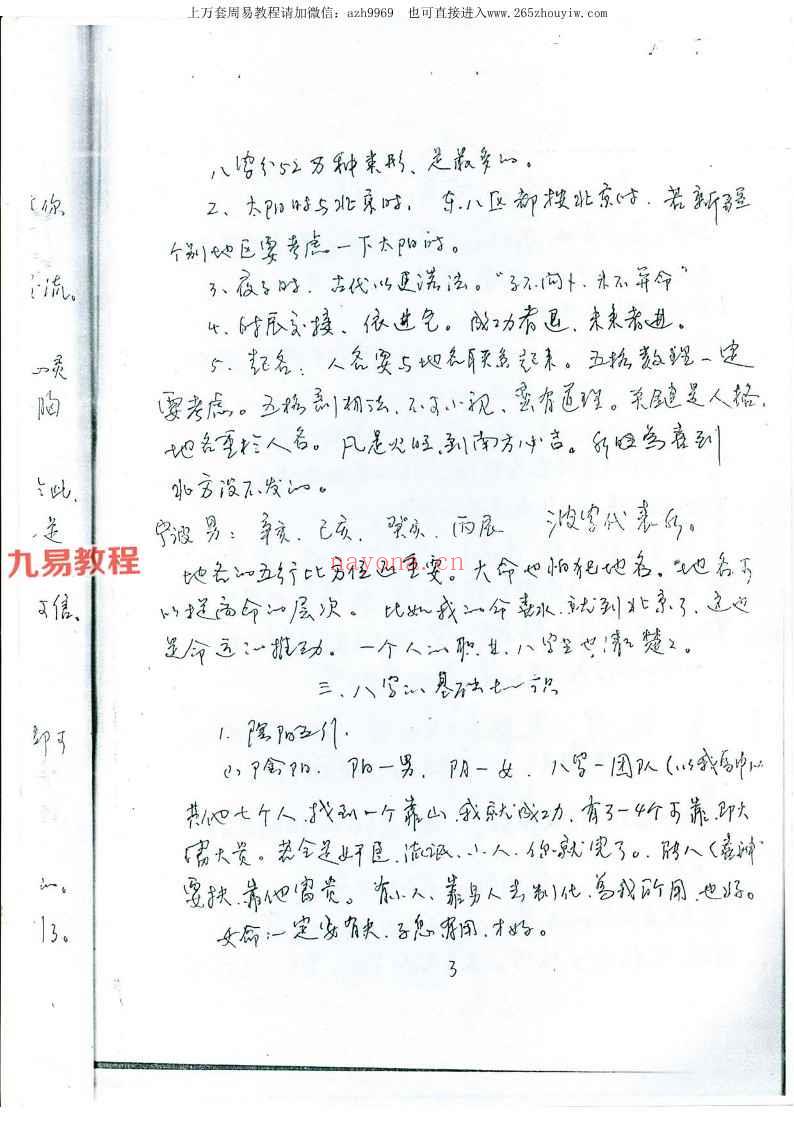 上万套周易教程请加微信：azh9969 也可直接进入www.265zhouyiw.com
八字分52万种类形、是最多的。
2、太阳时与北京时，东八区都按北京时．若新疆
个别地区要考虑一下太阳时。
3、夜子时．古代以更漏法。“子不问卜．未不算命”
4、时辰交接、依进气。成功者退，未来者进。
5、起名：人名要与地名联系起来。五格数理一定
要考虑。五格剖相法，不可小视，蛮有道理。关键是人格，
地名重于人名。凡是火旺，到南方必吉。水旺为喜到
北方没不发的。
宁波男：辛亥、己亥、癸亥、丙辰 波字代表水。
九易教程
nayona.cn
地名的五行比方位还重要。大命也怕犯地名。地名可
以提高命的层次。比如我的命喜水，就到北京了，这也
是命运的推动。一个人的职业，八字上也清清楚楚。
三、八字的基础知识
1. 阴阳五行．
(1) 阴阳．阳一男，阴一女．八字一团队（以我为中心
其他七个人，找到一个靠山，我就成功，有了一4个可靠，即大
富大贵。若全是奸臣、流氓、小人，你就完了。
要扶，靠他富贵。有小人、靠男人去制化，为我所用，也好。
女命：一定要有夫、子息有用，才好。
3
你
流。
灵
胸
此，
是
可信、
部可
的。
了。